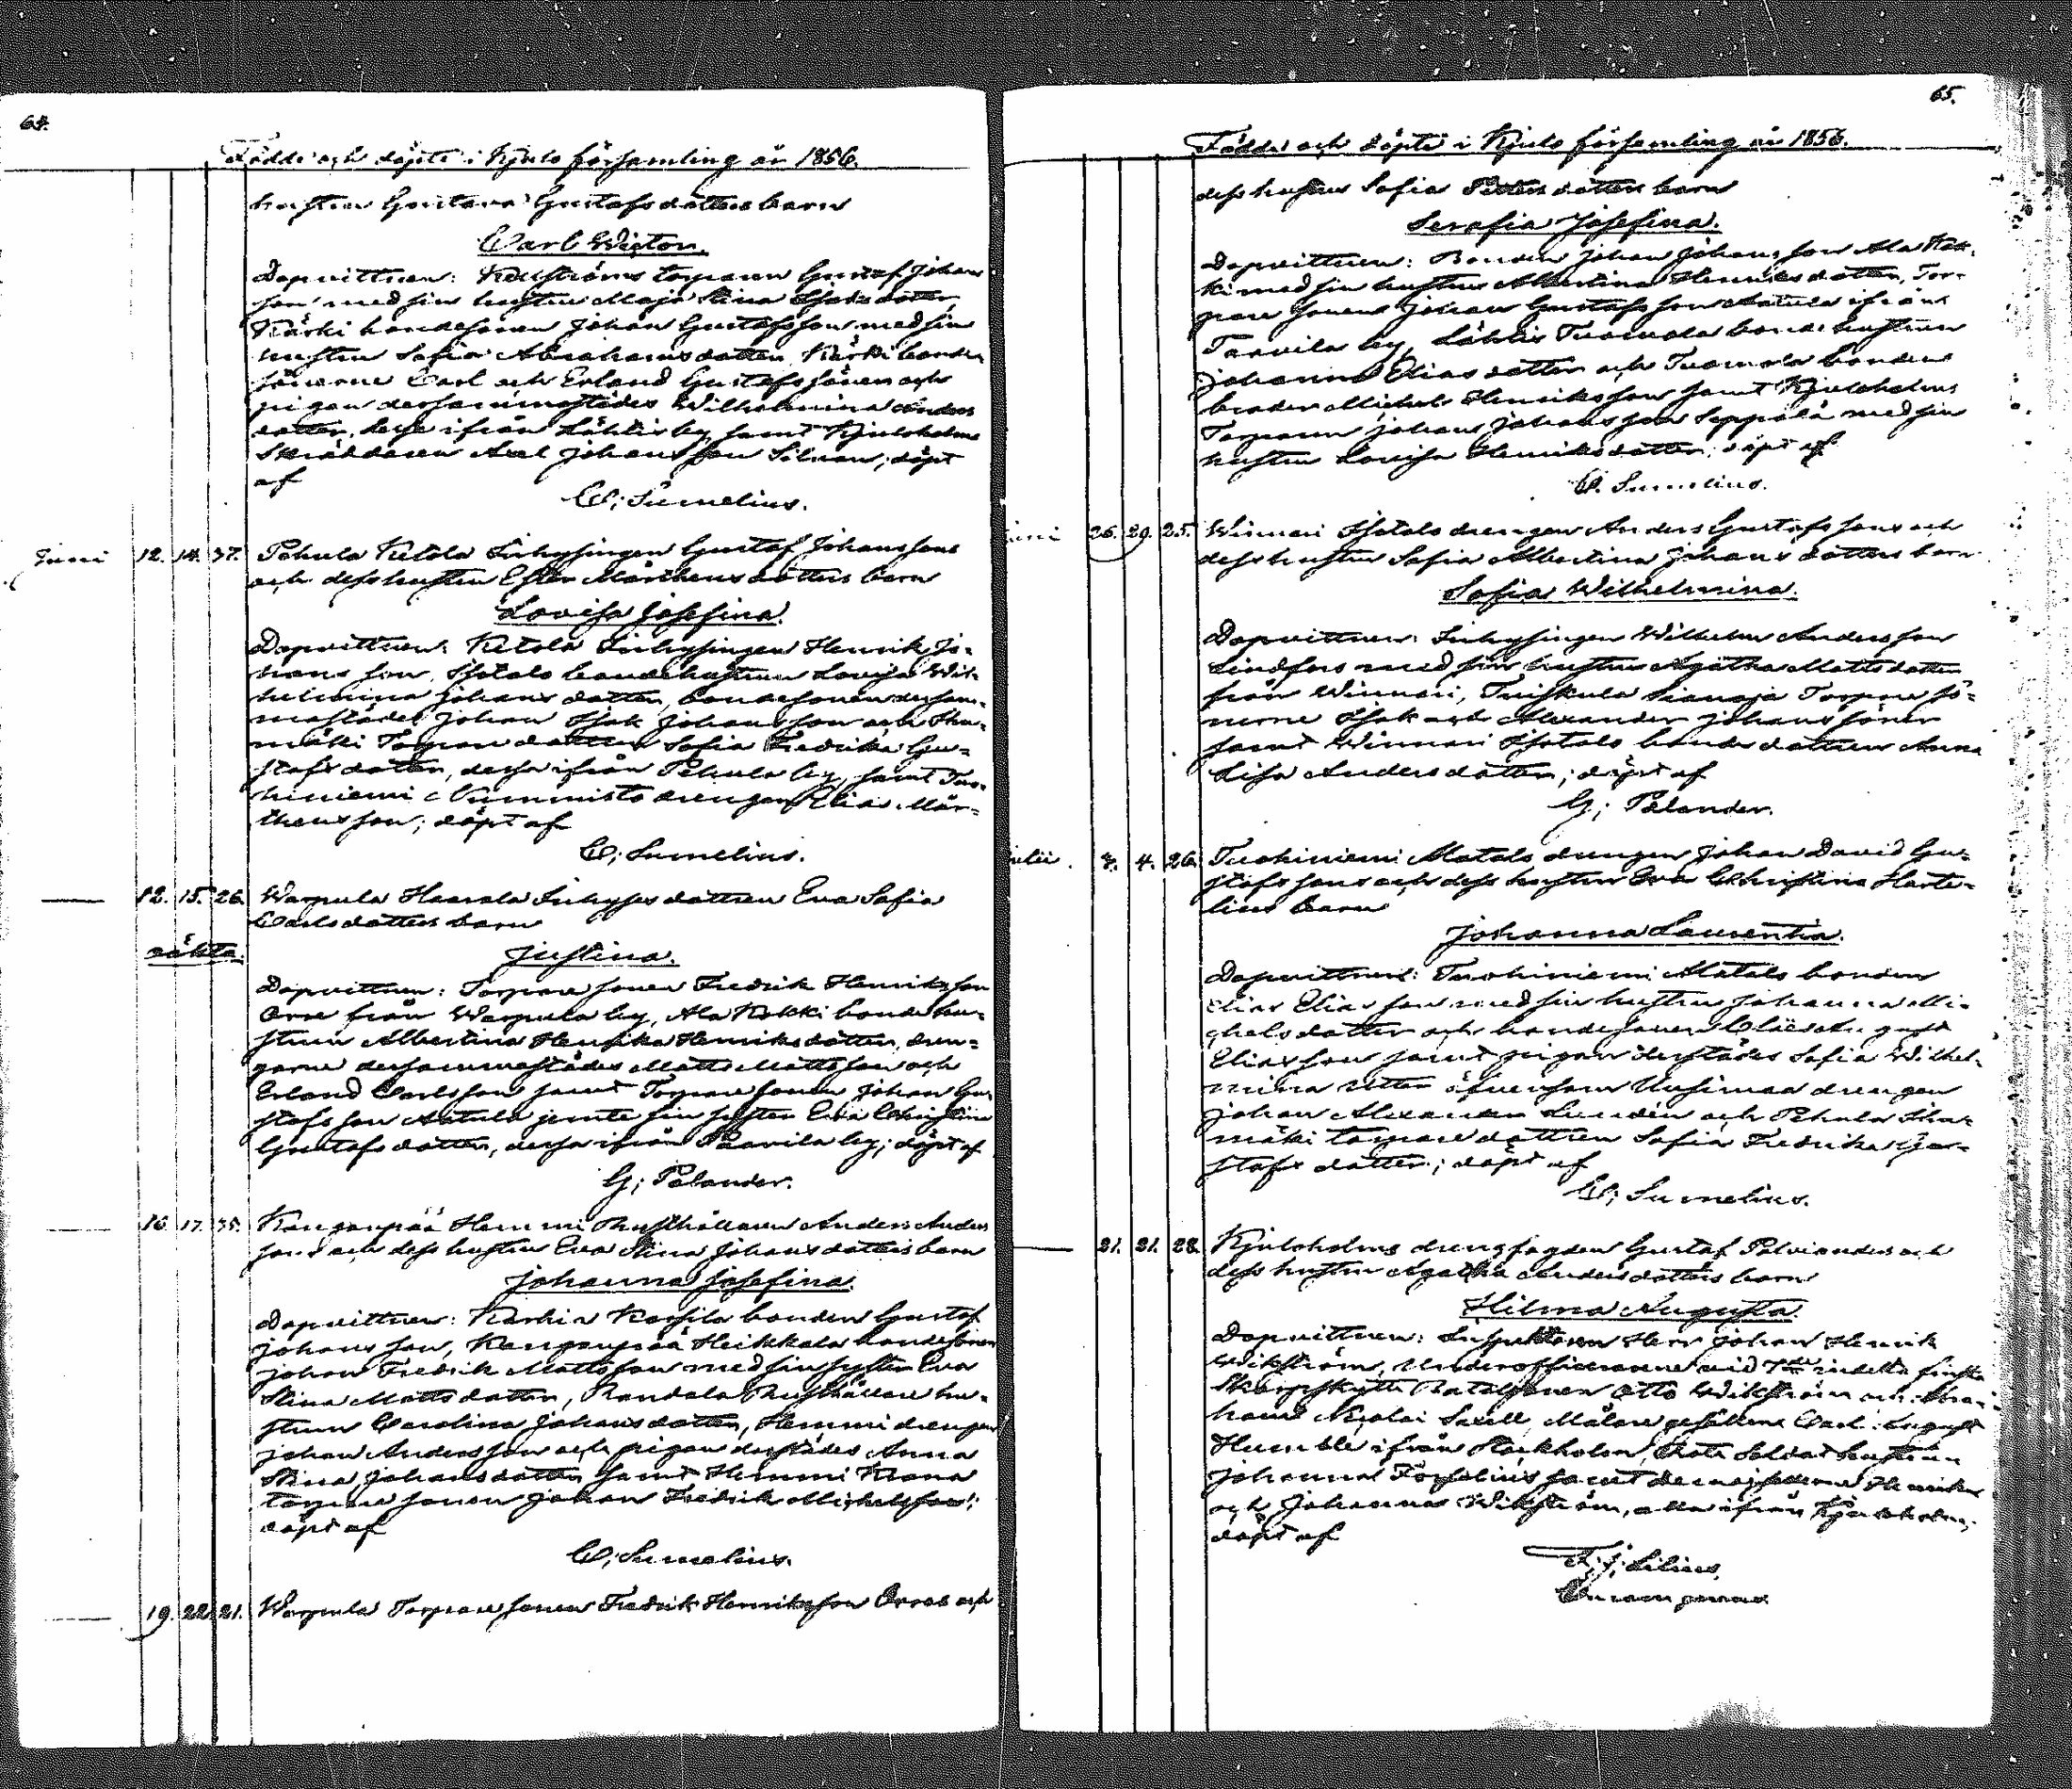 64.
Födde och döpte i Kjulo församling år 1856.
hustrun Gustava Gustafsdotters barn
Carl Wigton.
Dopvittnen: torparen Gustaf Johans
son med sin hustru Maja Stina Isaksdotter
Kärki bondesonen Johan Gustafsson med sin
hustru Sofia Abrahamsdotter, Kärki bonde
sönerne Carl och Erland Gustafssöner och
pigan dersammastädes Wilhelmina Anders
dotter, desse ifrån Lähtis by, samt Kjuloholms
Skräddaren Axel Johansson Silvan; döpt
af
C; Sumelius.
Juni 12. 14. 37. Pehula Ketola Inhysingen Gustaf Johanssons
och dess hustru Ester Märthensdotters barn
Lovisa Josefina.
Dopvittnen: Ketola Inhysingen Henrik Jo-
hansson, Isotalo bondehustrun Lovisa Wil-
helmina Johansdotter, bondesonen dersam-
mastädes Johan Isak Johansson och Iha-
mäki Torparedottren Sofia Fredrika Gu-
stafsdotter, dessa ifrån Pehula by, samt Tuo-
hiniemi Nummisto drengen Elias Mär-
thensson; döpt af
C; Sumelius.
12. 15. 26. Warpula Haarala Inhysesdottren Eva Sofia
Carlsdotters barn
oäkta. Justina.
Dopvittnen: Torparesonen Fredrik Henriksson
Orre från Warpula by, Ala Kokki bondehu-
strun Albertina Henrika Henriksdotter, dren-
garne dersammastädes Matts Mattsson och
Erland Carlsson samt Torparesonen Johan Gu-
stafsson Antula jemte sin syster Eva Christina
Gustafsdotter, dessa ifrån Paavila by; döpt af
G; Palander.
16. 17. 35. Kanganpää Hemmi Rusthållaren Anders Anders
sons och dess hustru Eva Stina Johansdotters barn
Johanna Josefina.
Dopvittnen: bonden Gustaf
Johansson, Kanganpää Heikkala bondesonen
Johan Fredrik Mattsson med sin syster Eva
Stina Mattsdotter, Randala Rusthållare hu-
strun Carolina Johansdotter, Hemmi drengen
Johan Andersson och pigan derstädes Anna
Stina Johansdotter samt Hemmi
torparesonen Johan Fredrik Michelsson;
döpt af
C; Sumelius.
19. 22. 21. Warpula Torparesonen Fredrik Henriksson Orres och
65.
Födde och döpte i Kjulo församling år 1856.
dess hustrus Sofia Pettersdotters barn
Serafia Josefina.
Dopvittnen: Bonden Johan Johansson Ala Kok-
ki med sin hustru Albertina Henriksdotter, Tor-
paresonen Johan Gustafsson Antula ifrån
Paavila by, Lähtis Tuomola bondehustrun
Johanna Eliasdotter och Tuomola bondens
broder Michel Henriksson samt Kjuloholms
Torparen Johan Johansson Seppälä med sin
hustru Lovisa Henriksdotter; döpt af
C. Sumelius.
Juni 26. 29. 25. Winnari Isotalo drengen Anders Gustafssons och
dess hustru Sofia Albertina Johansdotters barn
Sofia Wilhelmina.
Dopvittnen: Inhysingen Wilhelm Andersson
Lindfors med sin hustru Agatha Mattsdotter
från Winnari, Tuiskula Torpare sö-
nerne Isak och Alexander Johanssöner
samt Winnari Isotalo bondedottren Anna
Lisa Andersdotter; döpt af
G; Palander.
Julii. 3. 4. 26. Tuohiniemi Matals drengen Johan David Gu-
stafssons och dess hustru Eva Christina Harte-
lius barn
Johanna Laurentia.
Dopvittnen: Tuohiniemi Matals bonden
Elias Eliasson med sin hustru Johanna Mi-
chelsdotter och bondesonen August
Eliasson samt pigan derstädes Sofia Wilhel-
mina äfvensom Uusimaa drengen
Johan Alexander Lundén och Pehula Iha-
mäki torparedottren Sofia Fredrika Gu-
stafsdotter; döpt af
C; Sumelius.
21. 21. 28. Kjuloholms drengfogden Gustaf Palvianders och
dess hustru Agatha Andersdotters barn
Hilma Augusta.
Dopvittnen: Inspektoren Herr Johan Henrik
Wikström, Underofficerarne vid 7de indelta finska
Skarpskytte Bataljonen Otto Wikström och Abra-
ham Nicolai Saxell, Målare gesällerne Carl August
Humble ifrån Stockholm, Rote Soldat hustrun
Johanna Forselius samt demoisellerne Henrika
och Johanna Wikström, alla ifrån Kjuloholm;
döpt af
F; J; Lilius,